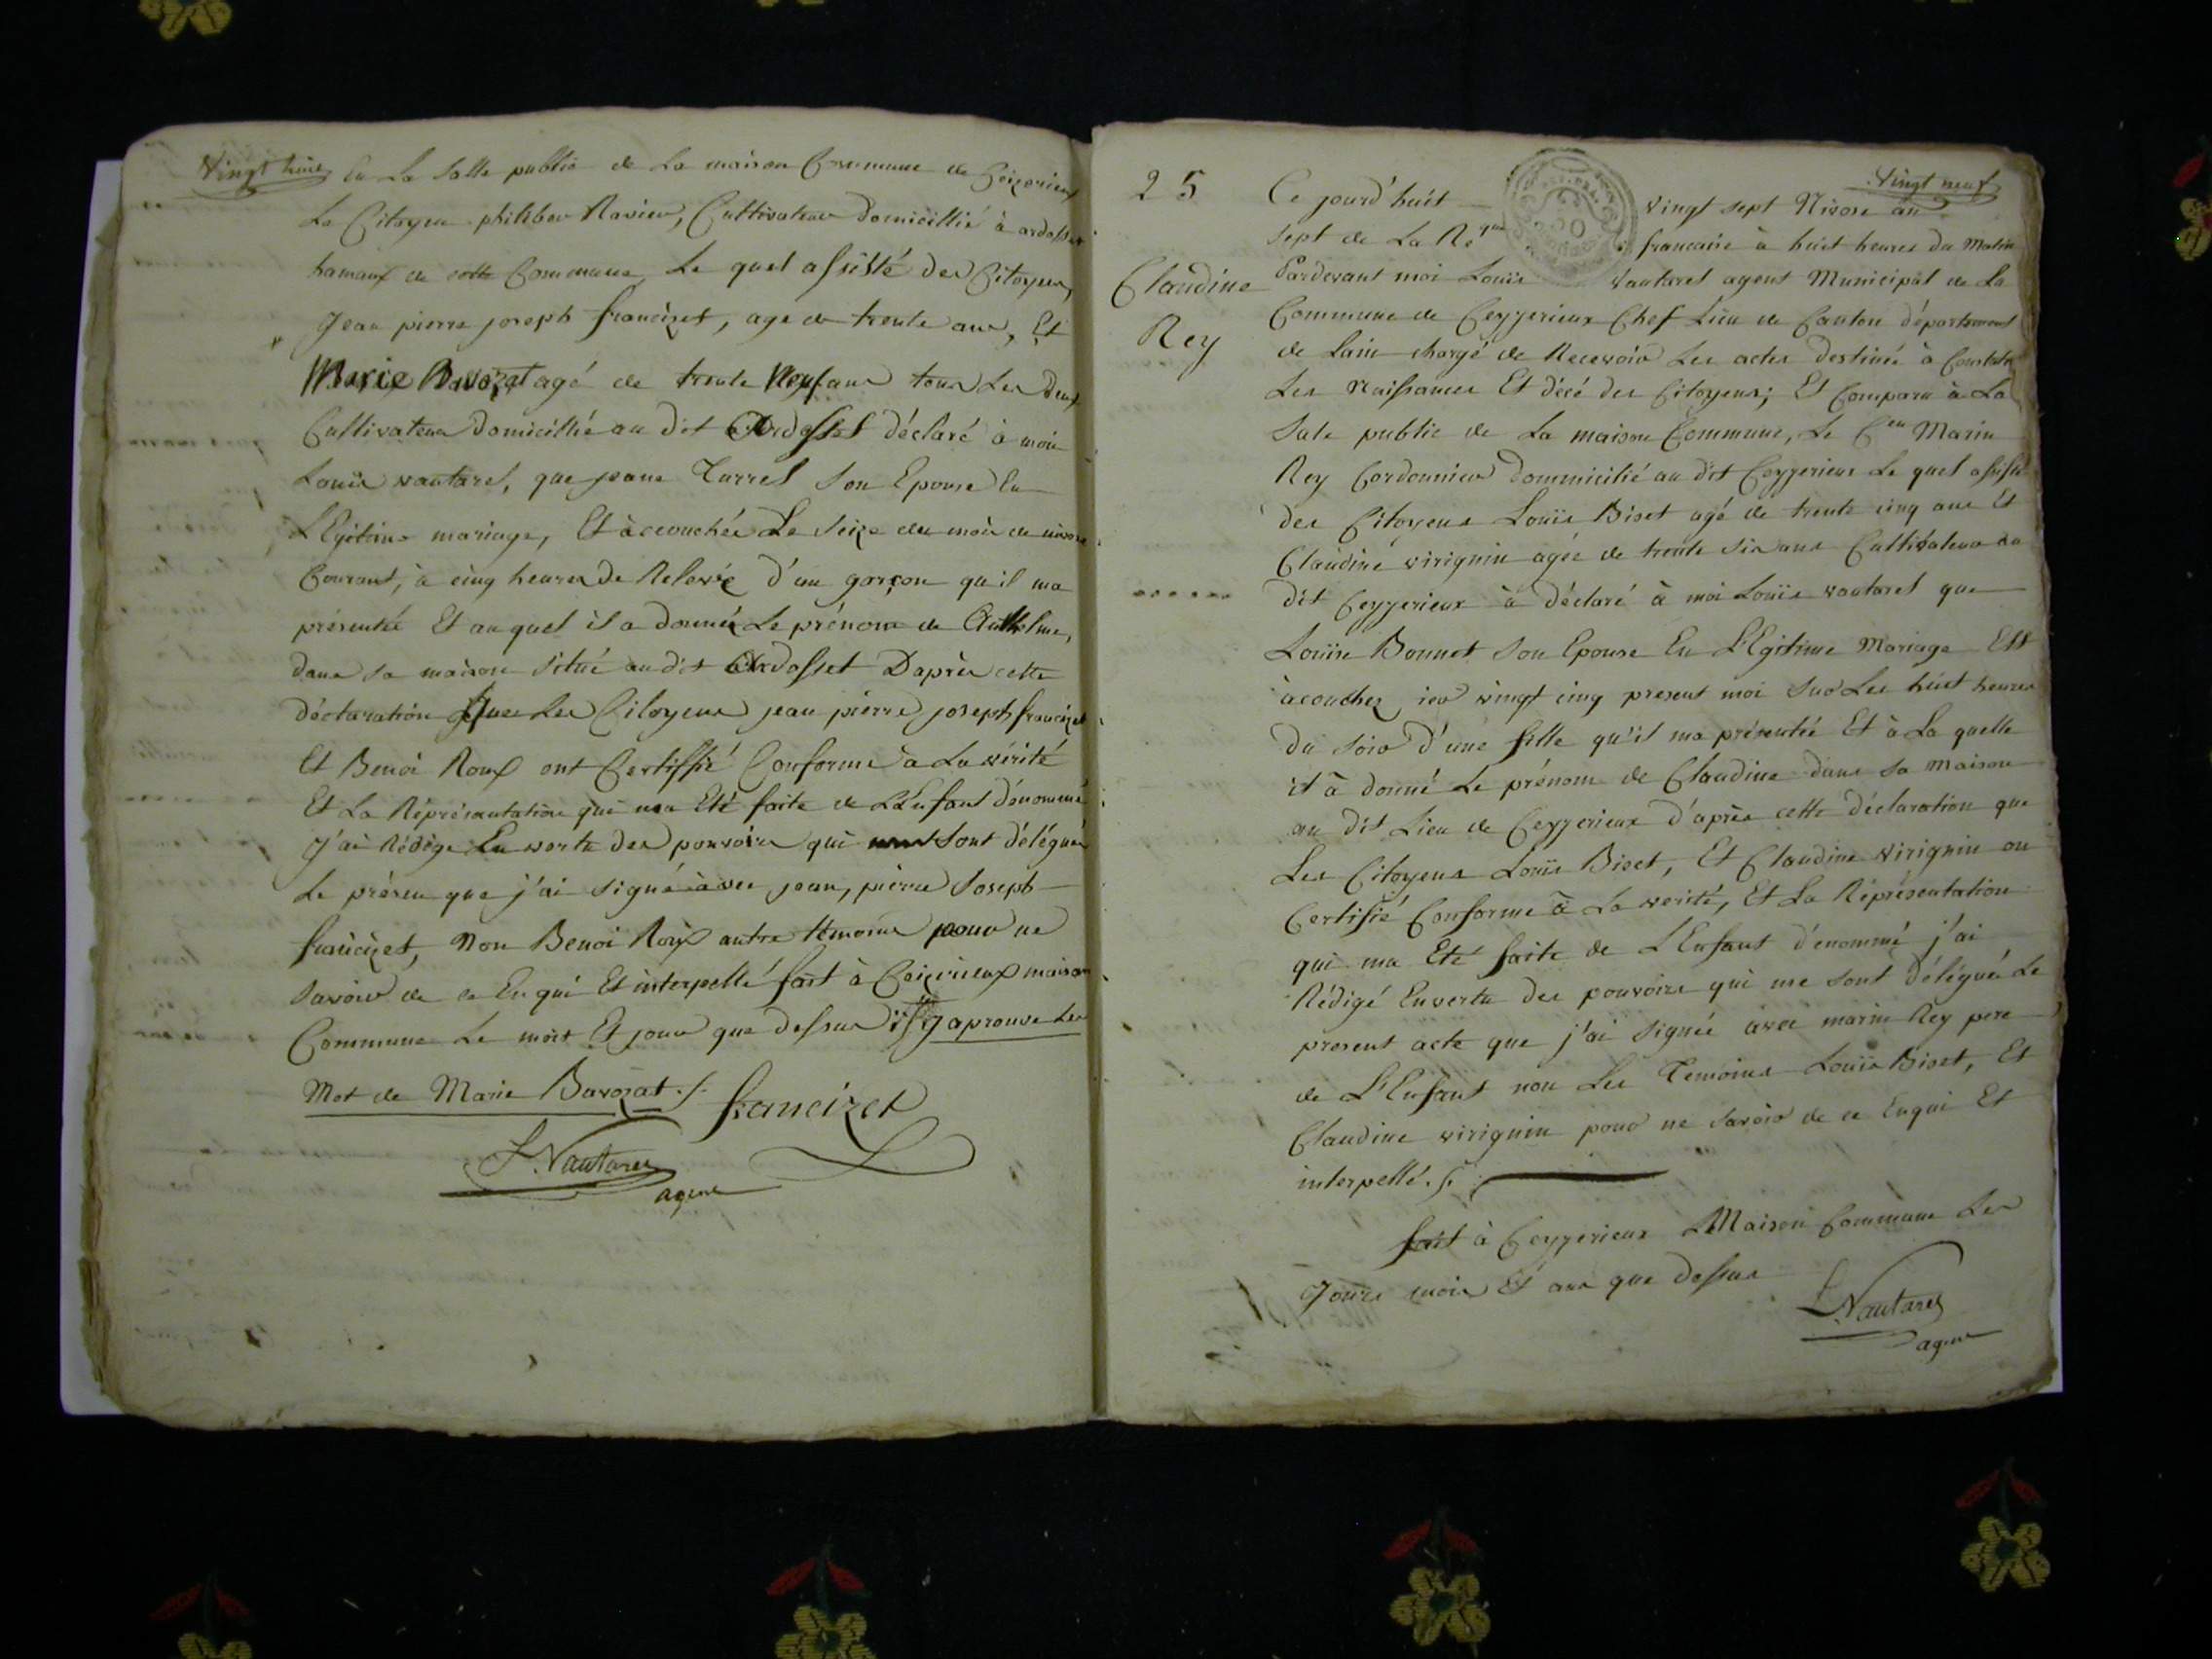 Vingt huit
En La Salle public de La maison Commune de Ceizerieux
Le Citoyen philiber Ravier, Cultivateur Domicillié à ardosset
hamaux de cette Commune, Le quel assisté des Citoyens
Jean pierre joseph francizet, age de trente ans, Et
Marie Bavozat agé de trente Neuf ans tous Les deux
Cultivateur Domicillié au dit Ardosset déclaré à moi
Louis vautaret, que jeane Turrel Son Epouse En
L'Egitime mariage, Et àccouchée Le Seize du mois de nivose
Courant, à cinq heures De Relevée d'un garçon qu'il ma
présentée Et auquel il a donnée Le prénom de Anthelme,
dans sa maison Situé au dit Ardosset D'après cette
déclaration Que Les Citoyens jean pierre joseph francizet
Et Benoi Roux ont Certiffié Conforme à La vérité
Et La Réprésantation qui ma Eté faite de L'Enfant dénommé
J'ai Rédigé En vertu des pouvoirs qui me Sont délégués
Le présen que j'ai Signé avec jean, pierre Joseph
francizet, Non Benoi Roux autre témoins pour ne
savoir de ce Enqui Et interpellé fait à Ceizerieux maison
Commune Le mois Et jour que dessus aprouve Les
Mot de Marie Bavozat ./.
francizet
L. Vautaret
agent
Vingt neuf
25
Claudine
Rey
Ce jourd'huit vingt sept Nivose an
sept de La Réque francaise à huit heures du Matin
Pardevant moi Louis Vautaret agent Municipal de La
Commune de Ceyzerieux Chef Lieu de Canton départemant
de Lain chargé de Recevoir Les actes destinés à Constater
Les Naissances Et décé des Citoyens; Et Comparu à La
Sale public de La maison Commune, Le Cen Marin
Rey Cordonnier Dommicilié au dit Ceyzerieux Le quel assisté
des Citoyens Louis Biset agé de trente cinq ans Et
Claudine virignin agée de trente Six ans Cultivateur au
dit Ceyzerieux à déclaré à moi Louis vautaret que
Louise Bonnet Son Epouse En L'Egitime Mariage Est
àcouchez ier vingt cinq present moi Sur Les huit heures
du Soir d'une fille qu'il ma présentée Et à La quelle
il à donné Le prénom de Claudine dans sa Maison
au dit Lieu de Ceyzerieux d'après cette déclaration que
Les Citoyens Louis Biset, Et Claudine virignin on
Certifié Conforme à La verité, Et La Réprésentation
qui ma Eté faite de L'Enfant dénommé j'ai
Rédigé Envertu des pouvoirs qui me sont délégués Le
present acte que j'ai signée avec marin Rey pere
de L'Enfant non Les Temoins Louis Biset, Et
Claudine virignin pour ne savoir de ce Enqui Et
interpellé ./.
fait à Ceyzerieux Maison Commune Les
Jours mois Et ans que dessus
L. Vautaret
agent